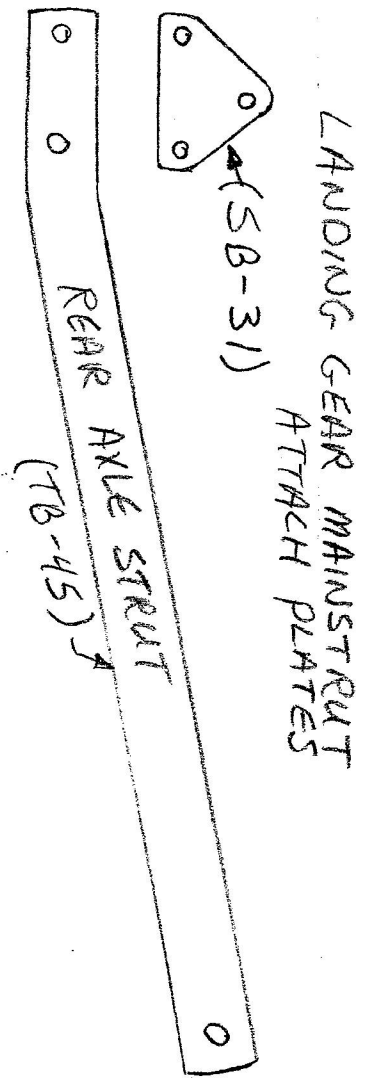 LANDING GEAR MAINSTRUT
ATTACH PLATES
(SB-31)
REAR AXLE STRUT
(TB-45)